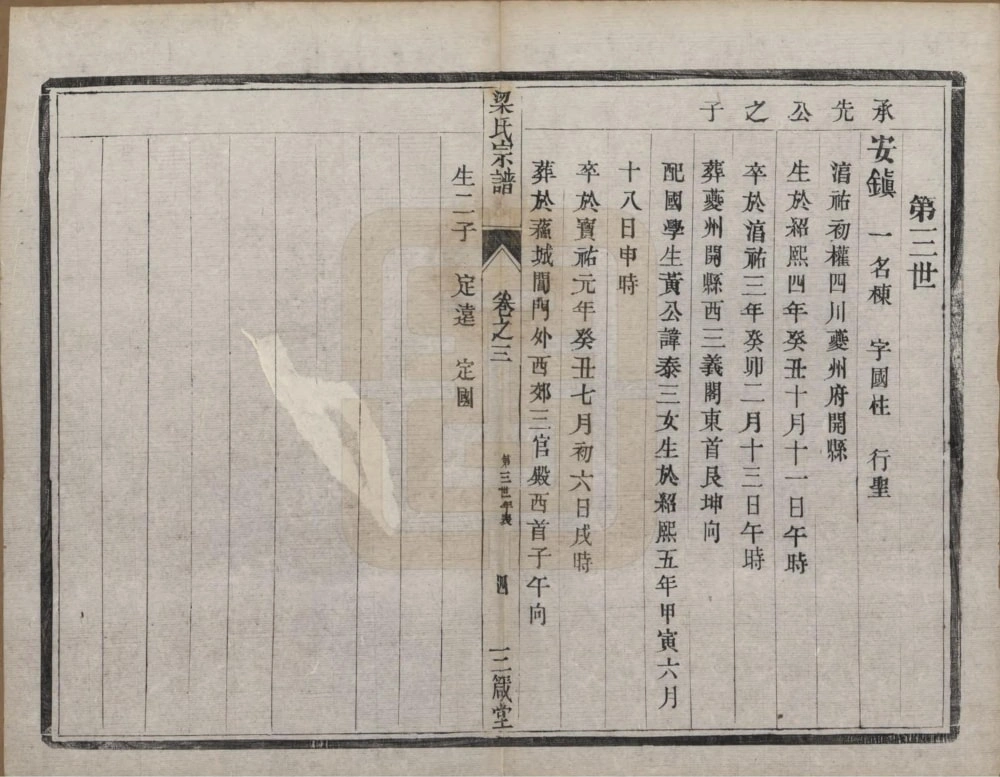 第三世
承先公之子
安鎭　一名棟　字國性　行聖
淯祐初權四川夔州府開縣
生於紹熙四年癸丑十月十一日午時
卒於淯祐三年癸卯二月十三日午時
葬夔州開縣西三義閣東首艮坤向
配國學生黃公諱泰三女生於紹熙五年甲寅六月
十八日申時
卒於寶祐元年癸丑七月初六日戌時
葬於蘓城閶門外西郊三官殿西首子午向
梁氏宗譜　卷之三　第三世年表　四　三箴堂
生二子　定遠　定國